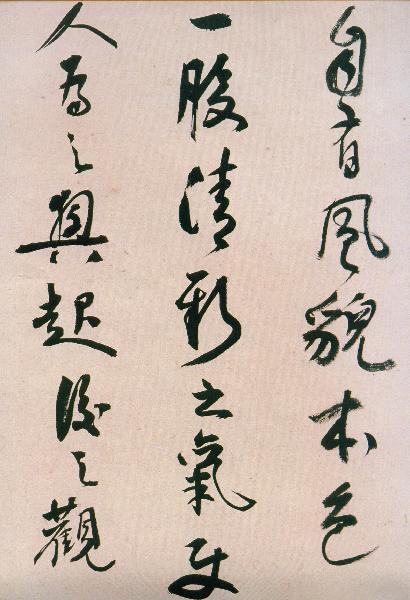 自有風貌本色
一股清新之氣使
人為之興起後之觀